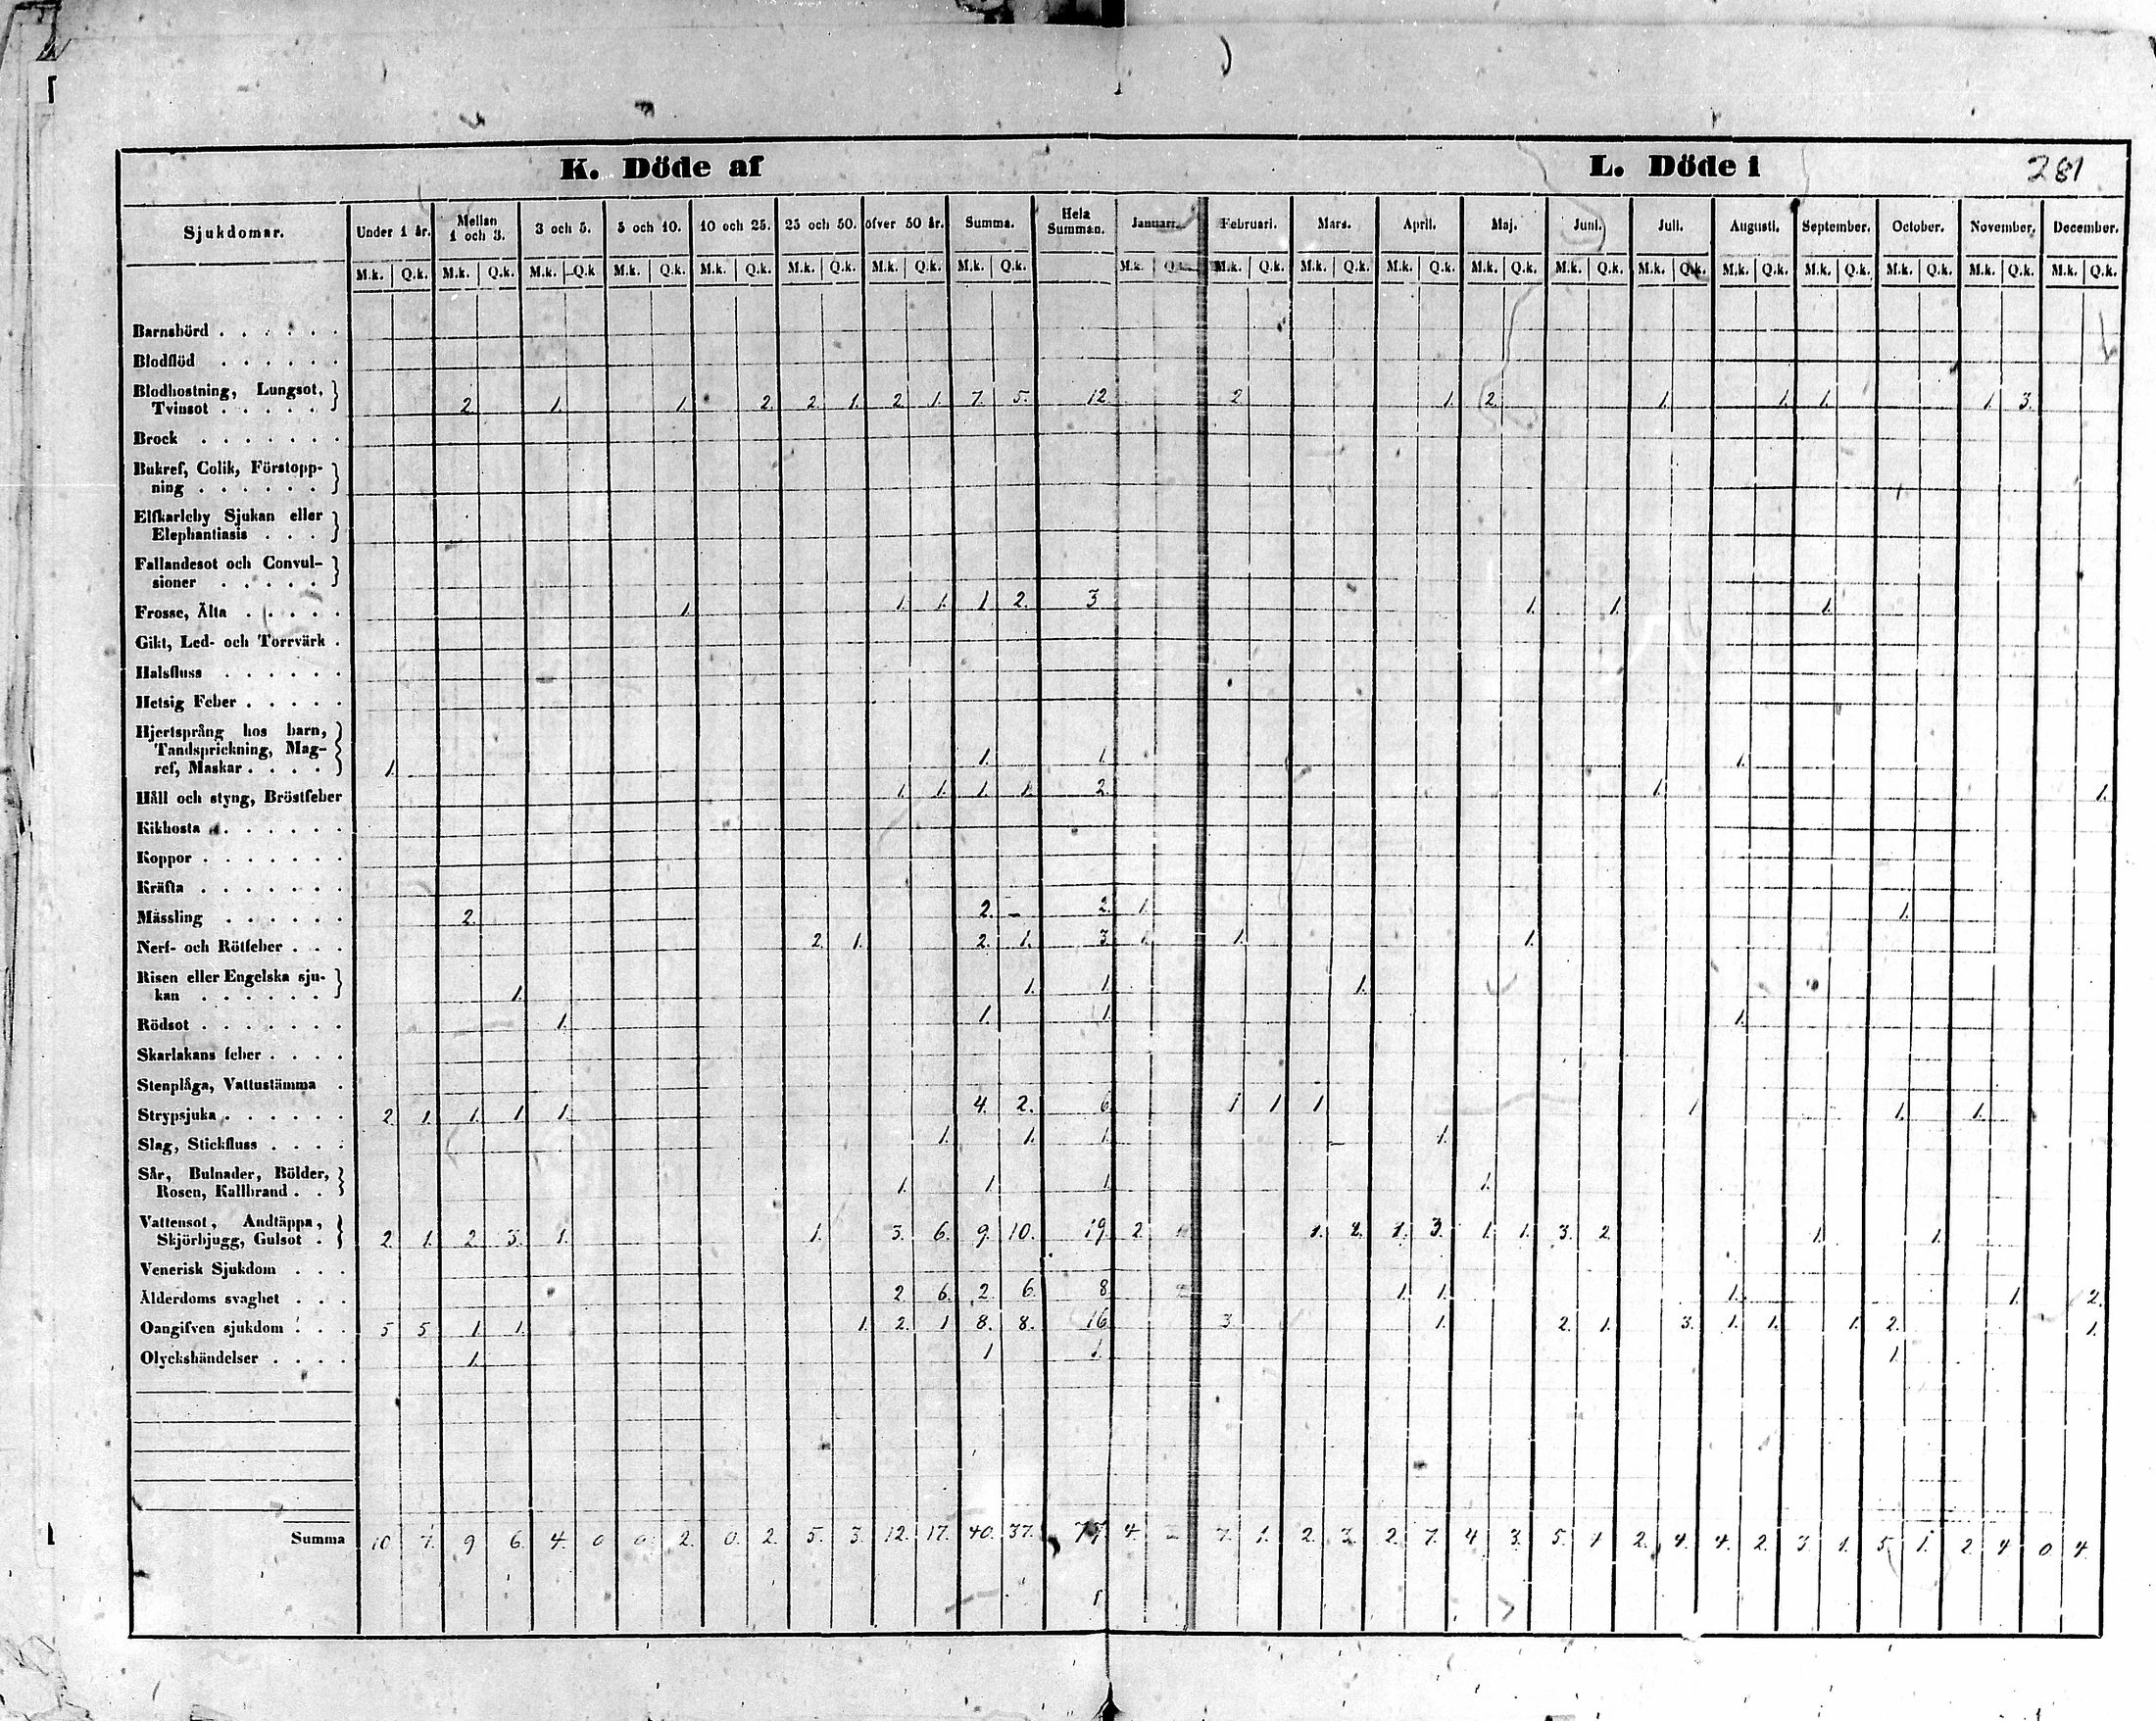 K. Döde af
L. Döde i
281
Sjukdomar. Under 1 år. Mellan 1 och 3. 3 och 5. 5 och 10. 10 och 25. 25 och 50. öfver 50 år. Summa. Hela Summan. Januari. Februari. Mars. April. Maj. Juni. Juli. Augusti. September. October. November. December.
M.k. Q.k. M.k. Q.k. M.k. Q.k M.k. Q.k. M.k. Q.k. M.k. Q.k. M.k. Q.k. M.k. Q.k. M.k. Q.k. M.k. Q.k. M.k. Q.k. M.k. Q.k. M.k. Q.k. M.k. Q.k. M.k. Q.k. M.k. Q.k. M.k. Q.k. M.k. Q.k. M.k. Q.k. M.k. Q.k.
Barnsbörd . . . . . .
Blodflöd . . . . . .
Blodhostning, Lungsot,
Tvinsot . . . . . 2. 1. 1. 2. 2. 1. 2. 1. 7. 5. 12. 2 1. 2. 1. 1. 1. 1. 3.
Brock . . . . . . .
Bukref, Colik, Förstopp-
ning . . . . . .
Elfkarleby Sjukan eller
Elephantiasis . . .
Fallandesot och Convul-
sioner . . . . .
Frosse, Älta . . . . . 1. 1. 1. 1 2. 3 1. 1. 1.
Gikt, Led- och Torrvärk .
Halsfluss . . . . . .
Hetsig Feber . . . . .
Hjertsprång hos barn,
Tandsprickning, Mag-
ref, Maskar . . . . 1. 1. 1. 1.
Håll och styng, Bröstfeber 1. 1. 1. 1. 2. 1. 1.
Kikhosta . . . . . .
Koppor . . . . . . .
Kräfta . . . . . . .
Mässling . . . . . . 2. 2. – 2. 1. 1.
Nerf- och Rötfeber . . . 2. 1. 2. 1. 3 1. 1. 1.
Risen eller Engelska sju-
kan . . . . . . 1. 1. 1. 1.
Rödsot . . . . . . . 1. 1. 1. 1.
Skarlakans feber . . . .
Stenplåga, Vattustämma .
Strypsjuka . . . . . . 2. 1. 1. 1 1. 4. 2. 6. 1 1 1 1 1. 1.
Slag, Stickfluss . . . . 1. 1. 1. 1.
Sår, Bulnader, Bölder,
Rosen, Kallbrand . . 1. 1 1. 1.
Vattensot, Andtäppa,
Skjörbjugg, Gulsot . 2. 1. 2. 3. 1. 1. 3. 6. 9. 10. 19. 2. 1. 2. 1. 3. 1. 1. 3. 2. 1. 1.
Venerisk Sjukdom . . .
Ålderdoms svaghet . . . 2 6. 2. 6. 8. 1. 1. 1. 1. 2.
Oangifven sjukdom . . . 5 5 1. 1. 1. 2. 1 8. 8. 16 3 1. 2. 1. 3. 1. 1. 1. 2. 1.
Olyckshändelser . . . . 1. 1 1. 1.
Summa 10 7. 9 6. 4. 0 0. 2. 0. 2. 5. 3. 12. 17. 40. 37. 77. 4. – 7. 1. 2. 3. 2. 7. 4 3. 5. 4 2. 4. 4. 2. 3. 1. 5. 1. 2. 4 0. 4.